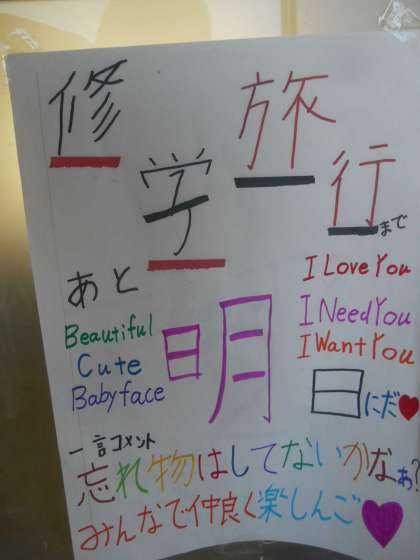 修学旅行まで
あと
Beautiful
Cute
Babyface
明日にだ♥
I Love You
I Need You
I Want You
一言コメント
忘れ物はしてないかなぁ?
みんなで仲良く楽しんご♥